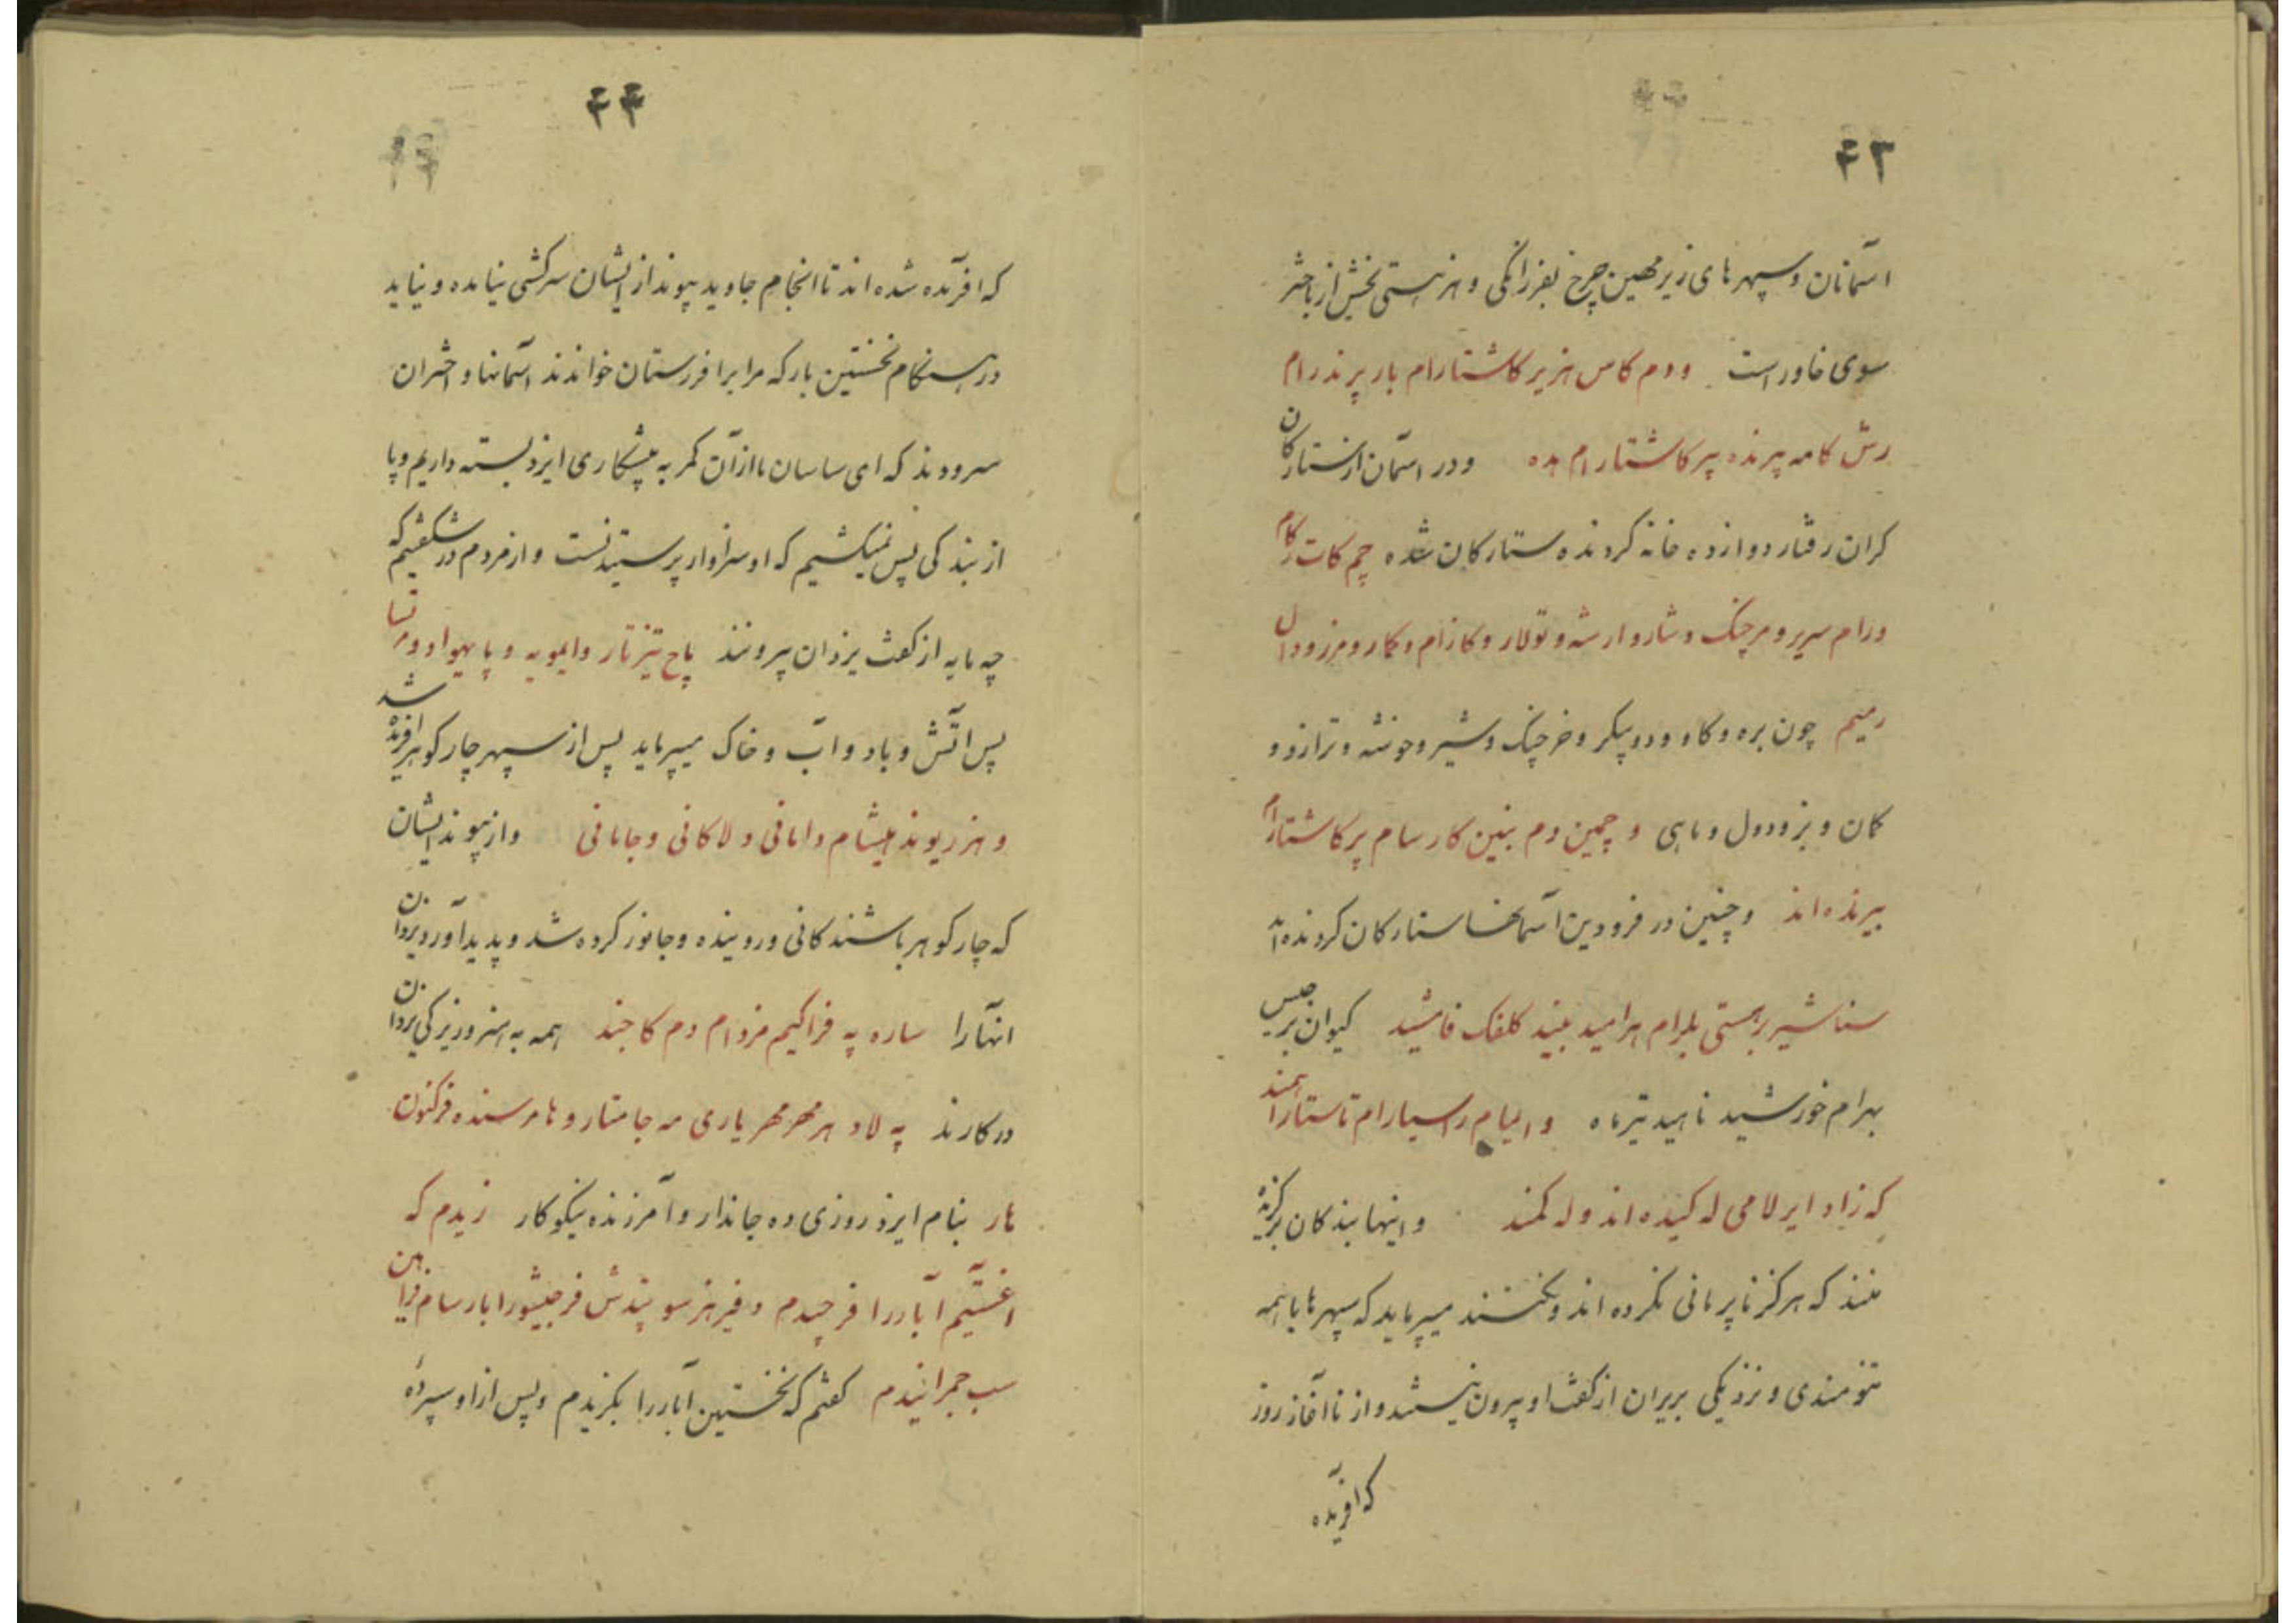 ۴۳
آسمانان و سپهرهای زیر مهین چرخ بفرزانگی و هنر هستی بخش از باختر
سوی خاور است ودم کاس هزیر کاشتارام بار پرندرام
رش کامه پرنده پرکاشتارام هده ودر اسمان از ستارکان
کران رفتار دوازده خانه کردنده ستارکان شده چم کات رکام
ورام سریر و مرچنک و شار وارشه و تولار و کازام و کمار و مرز و دال
رمیم چون بره و کاو و دوپیکر و خرچنک و شیر و خوشه و ترازو و
کمان و بز و دول و ماهی و چمین دم بنین کارسام پرکاشتارام
پیرنده اند و چنین در فرودین آسمانها ستارکان کردنده اند
سناشیر برهمستی بلرام هرامید بنید کلفک فامشید کیوان برجیس
بهرام خورشید ناهید تیر ماه و المیام راسیارام تاستارا همند
که زاد ایرلامی له کیده اند وله کمند و اینها بندکان برکزیده
منند که هرکز نا پرمانی نکرده اند و نکنند میپرماید که سپهرها با همه
تنومندی و نزدیکی بر یزدان از کفت او بیرون نیستند و از نا آغاز روز
که افریده
۴۴
که افریده شده اند تا انجام جاوید پیوند از ایشان سرکشی نیامده و نیاید
در هنکام نخستین بار که مرا برا فرزستان خواندند آسمانها و اختران
سرودند که ای ساسان ما از آن کمر به پیشکاری ایزد بسته داریم و پا
از بندکی پس نمیکشیم که او سزاوار پرستیدنست و از مردم در شکفتیم که
چه مایه از کفت یزدان بیرونند پاج تیزتار و ایمویه و پا یهواد و مرنسا
پس اتش و باد و آب و خاک میپرماید پس از سپهر چار کوهر افریده شد
و هنر ریوند هیشام دامانی و لاکانی و جامانی و از پیوند ایشان
که چار کوهر باشند کانی و روینده و جانور کرده شد و پدید آورد یزدان
انهارا ساره په فراکیم مزدام دم کاجند همه به هنر و زیرکی یزدان
در کارند په لاد هر مهر مهریاری مه جامتار و هامرسنده فرکنون
هار بنام ایزد روزی ده جاندار و آمرزنده نیکوکار زیدم که
اغستیم آبادرا فرجیدم و فیر هز سو پندش فرجیشور ابار سام فرا هن
سب جمرانیدم کفتم که نخستین آبادرا بکزیدم و پس از او سیزده